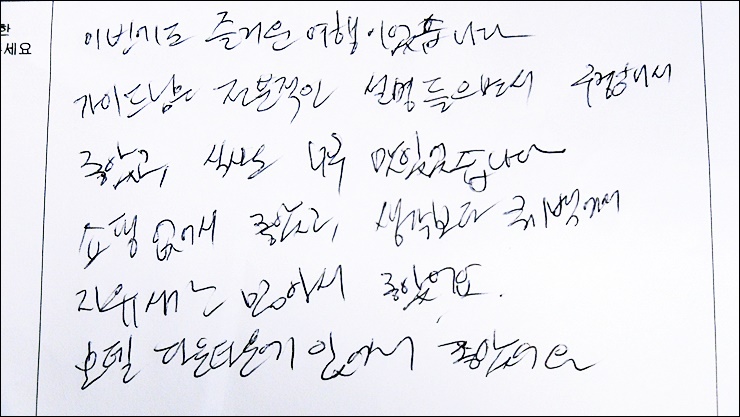 한
세요
이번기도 즐거운 여행이었습니다
가이드님의 전문적인 설명 들으면서 구경해서
좋았고, 식사도 너무 맛있었습니다
쇼핑 없어서 좋았고, 생각보다 퀘벡에서
자유시간 많아서 좋았어요.
호텔 다운타운에 있어서 좋았어요